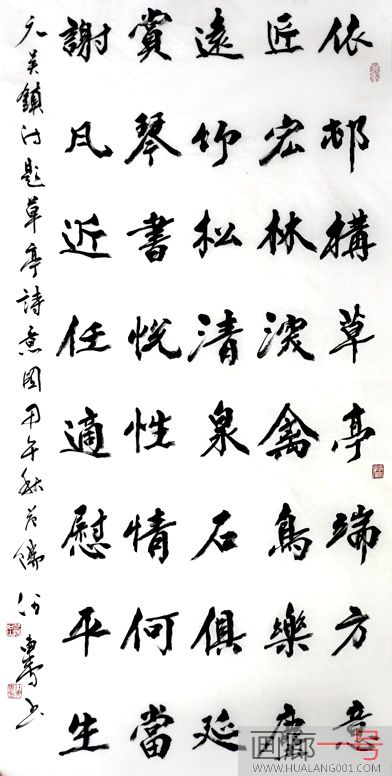 依邨構草亭端方意
匠宏林深禽鳥樂塵
遠竹松清泉石俱延
賞琴書悦性情何當
謝凡近任適慰平生
元吴鎮題草亭詩意图甲午秋書
画廊一号
WWW.HUALANG001.COM